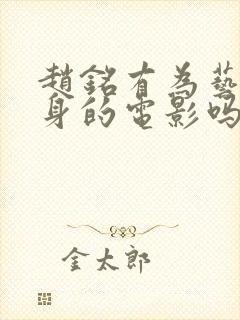 趙銘有為藝
身的電影吗
金太郎